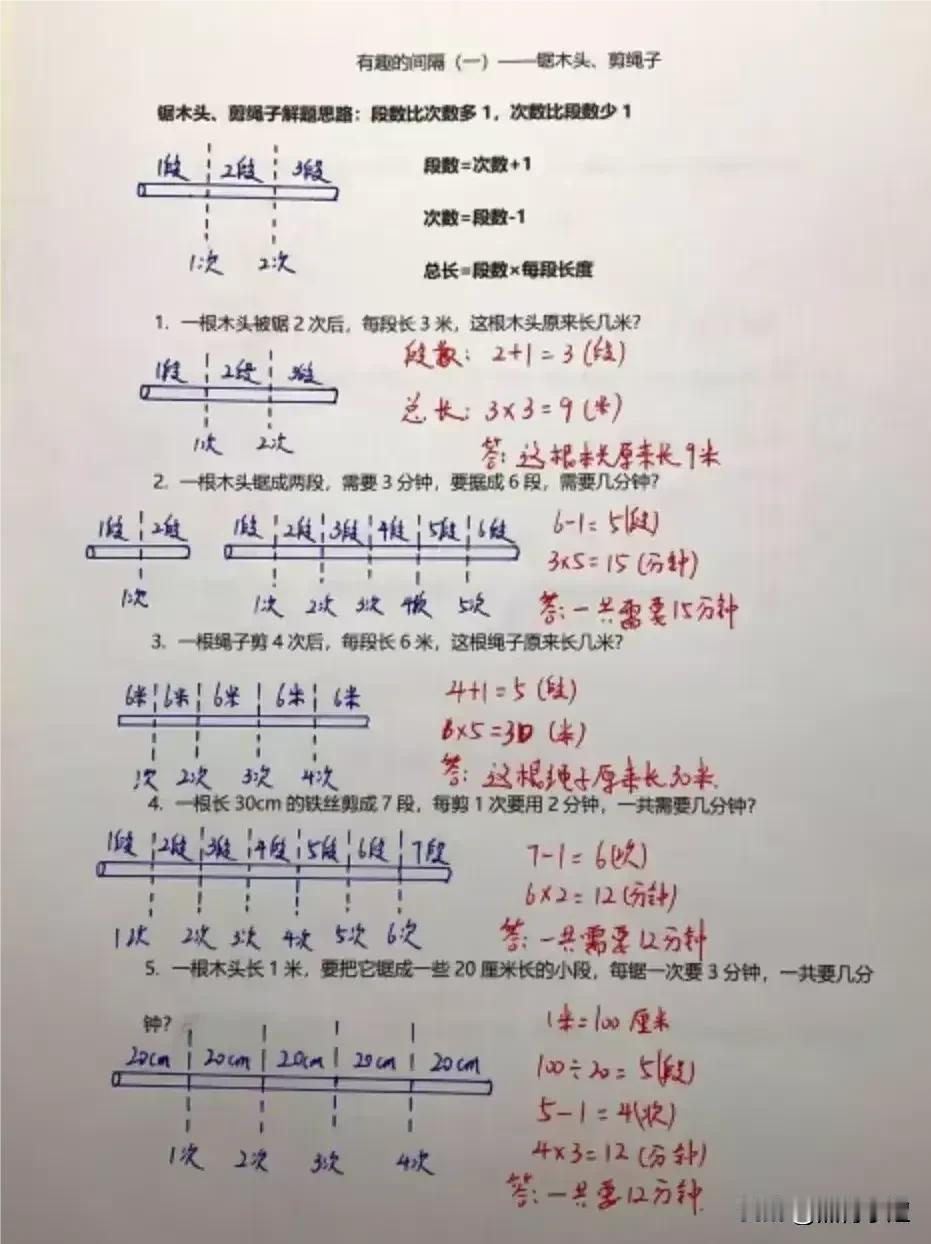 有趣的间隔（一）——锯木头、剪绳子
锯木头、剪绳子解题思路：段数比次数多1，次数比段数少1
1段 2段 3段
段数=次数+1
次数=段数-1
1次 2次
总长=段数×每段长度
1. 一根木头被锯2次后，每段长3米，这根木头原来长几米？
段数：2+1=3(段)
1段 2段 3段
总长：3×3=9(米)
1次 2次
答：这根木头原来长9米
2. 一根木头锯成两段，需要3分钟，要据成6段，需要几分钟？
1段 2段 1段 2段 3段 4段 5段 6段
6-1=5(段)
3×5=15(分钟)
1次 1次 2次 3次 4次 5次
答：一共需要15分钟
3. 一根绳子剪4次后，每段长6米，这根绳子原来长几米？
4+1=5(段)
6米 6米 6米 6米 6米
6×5=30(米)
1次 2次 3次 4次
答：这根绳子原来长30米.
4. 一根长30cm的铁丝剪成7段，每剪1次要用2分钟，一共需要几分钟？
1段 2段 3段 4段 5段 6段 7段
7-1=6(次)
6×2=12(分钟)
1次 2次 3次 4次 5次 6次
答：一共需要12分钟
5. 一根木头长1米，要把它锯成一些20厘米长的小段，每锯一次要3分钟，一共要几分
钟？
1米=100厘米
20cm 20cm 20cm 20cm 20cm
100÷20=5(段)
5-1=4(次)
4×3=12(分钟)
1次 2次 3次 4次
答：一共要12分钟.